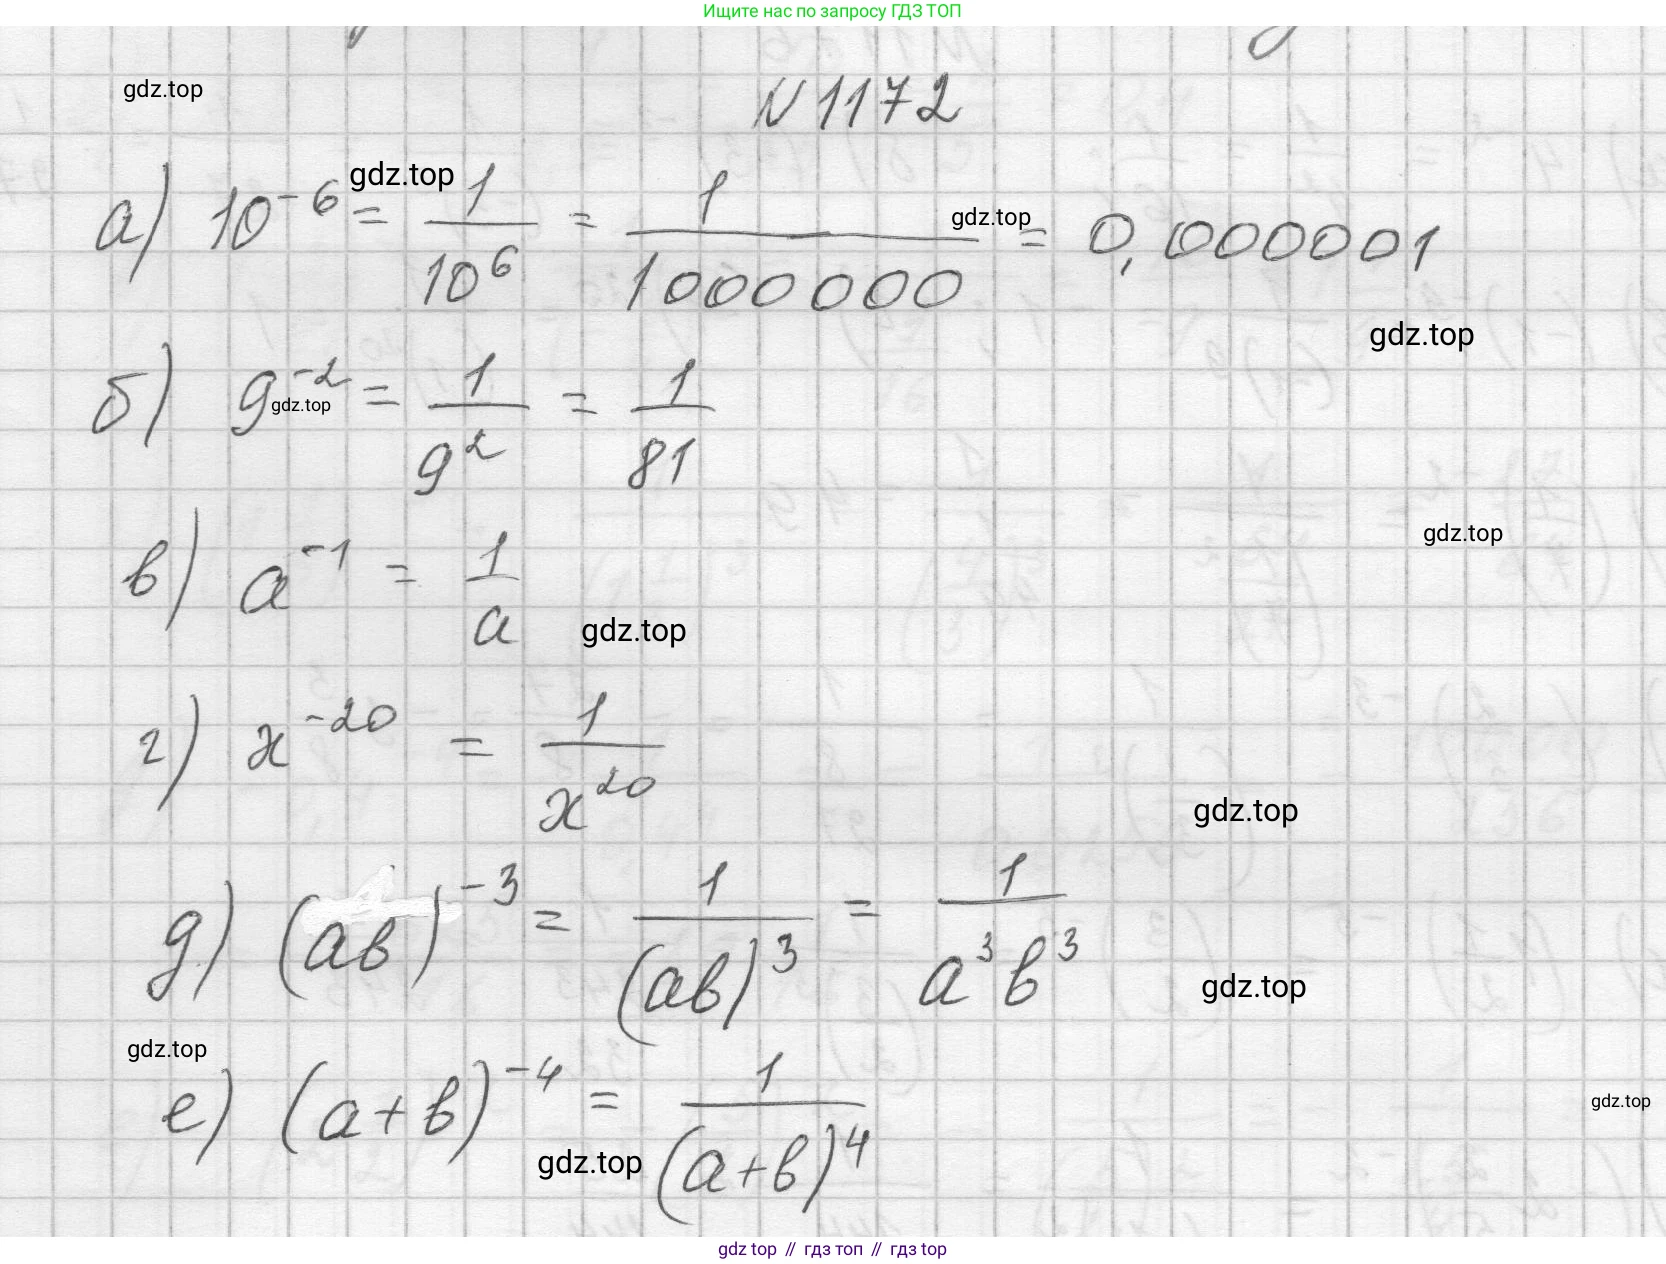 Ищите нас по запросу ГДЗ ТОП
N 1172
gdz.top
а) 10^-6 = 1/10^6 = 1/1000000 = 0,000001
gdz.top
gdz.top
gdz.top
б) 9^-2 = 1/9^2 = 1/81
gdz.top
gdz.top
в) a^-1 = 1/a
gdz.top
г) x^-20 = 1/x^20
gdz.top
д) (ab)^-3 = 1/(ab)^3 = 1/a^3b^3
gdz.top
gdz.top
е) (a+b)^-4 = 1/(a+b)^4
gdz.top
gdz.top
gdz top // гдз топ // гдз top